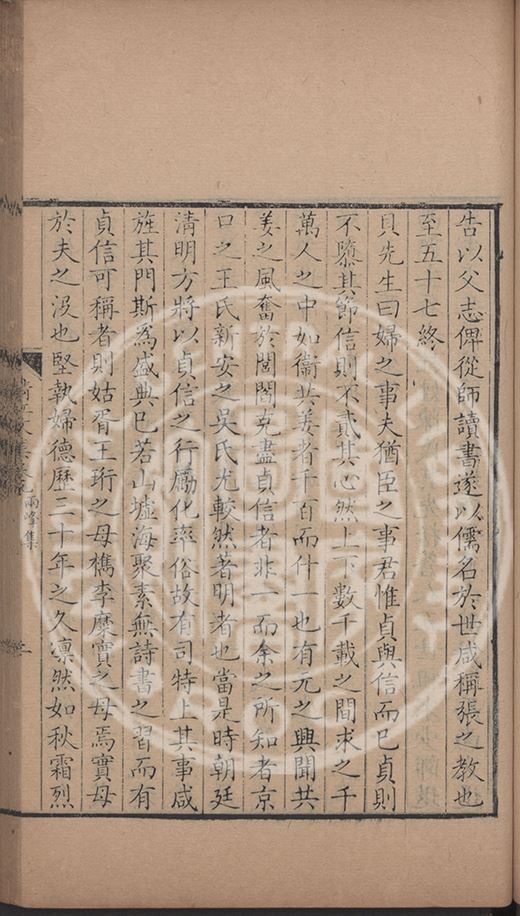 告以父志俾從師讀書遂以儒名於世咸稱張之教也
至五十七終
貝先生曰婦之事夫猶臣之事君惟貞與信而已貞則
不隳其節信則不貳其心然上下數千載之間求之千
萬人之中如衛共姜者千百而什一也有元之興聞共
姜之風奮於閨閤克盡貞信者非一而余之所知者京
口之王氏新安之吳氏尤較然著明者也當是時朝廷
清明方將以貞信之行厲化率俗故有司特上其事咸
旌其門斯為盛典已若山墟海聚素無詩書之習而有
貞信可稱者則姑胥王珩之母檇李糜實之母焉實母
於夫之沒也堅執婦德歷三十年之久凛然如秋霜烈
兩峰集